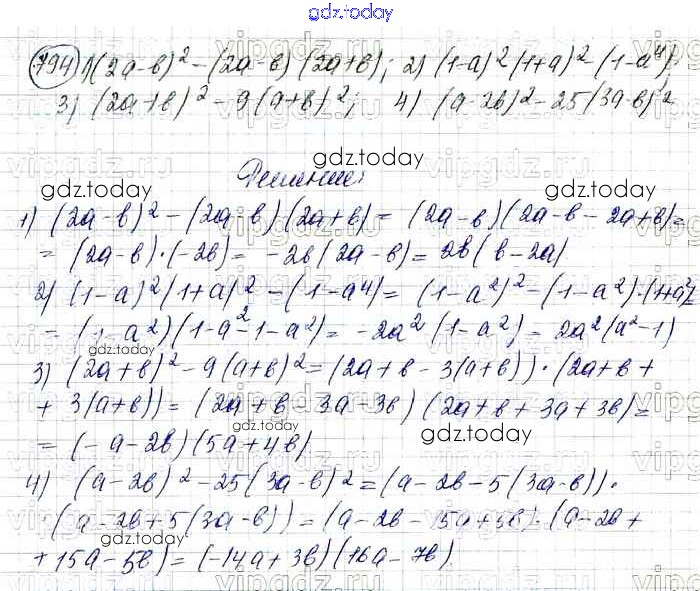 gdz.today
794 1) (2a-b)² - (2a-b)(2a+b); 2) (1-a)²(1+a)² - (1-a⁴);
3) (2a+b)² - 9(a+b)²; 4) (a-2b)² - 25(3a-b)²
gdz.today
Решение:
gdz.today gdz.today
1) (2a-b)² - (2a-b)(2a+b) = (2a-b)(2a-b-2a+b) =
= (2a-b)·(-2b) = -2b(2a-b) = 2b(b-2a)
2) (1-a)²(1+a)² - (1-a⁴) = (1-a²)² - (1-a²)·(1+a²)
= (1-a²)(1-a²-1-a²) = -2a²(1-a²) = 2a²(a²-1)
gdz.today
3) (2a+b)² - 9(a+b)² = (2a+b-3(a+b))·(2a+b+
+3(a+b)) = (2a+b-3a-3b)(2a+b+3a+3b) =
gdz.today
= (-a-2b)(5a+4b)
gdz.today
4) (a-2b)² - 25(3a-b)² = (a-2b-5(3a-b))·
(a-2b+5(3a-b)) = (a-2b-15a+5b)·(a-2b+
gdz.today
+15a-5b) = (-14a+3b)(16a-7b)
gdz.today